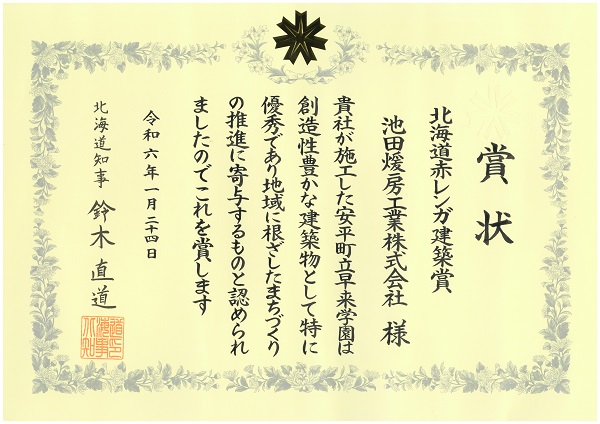 賞状
北海道赤レンガ建築賞
池田煖房工業株式会社 様
貴社が施工した安平町立早来学園は
創造性豊かな建築物として特に
優秀であり地域に根ざしたまちづくり
の推進に寄与するものと認められ
ましたのでこれを賞します
令和六年一月二十四日
北海道知事 鈴木直道